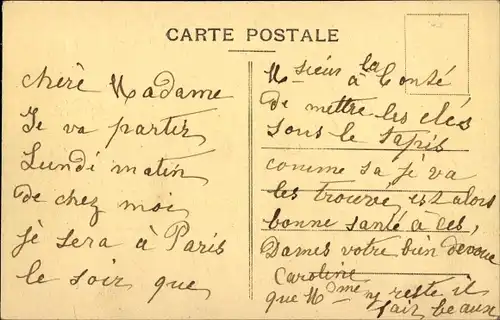 CARTE POSTALE
cherè Madame
Je va partir
Lundi matin
de chez moi
jè sera à Paris
le soir que
Msieur à la bonté
de mettre les clés
sous le tapis
comme sa jè va
les trouvé, est alors
bonne santé à ces,
Dames votre bien devoue
Caroline
que Mdme reste il
fair beaux